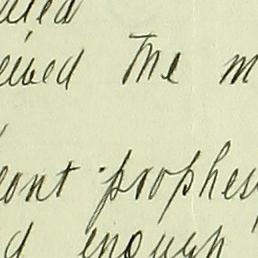 eived the m
ont prophes
d enough